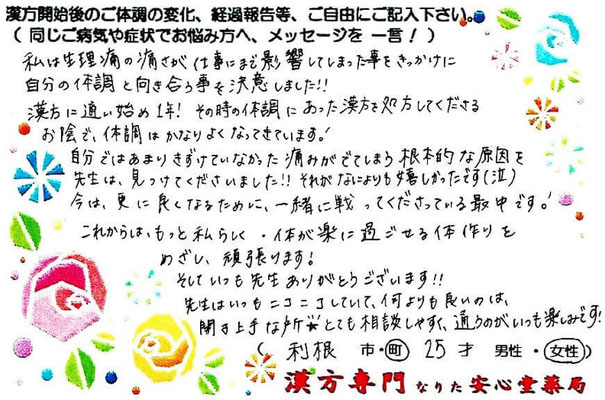 漢方開始後のご体調の変化、経過報告等、ご自由にご記入下さい。
( 同じご病気や症状でお悩み方へ、メッセージを 一言！ )
私は生理痛の痛さが仕事にまで影響してしまった事をきっかけに
自分の体調と向き合う事を決意しました!!
漢方に通い始め1年! その時の体調にあった漢方を処方してくださる
お陰で、体調はかなりよくなってきています!
自分ではあまりきずけていなかった痛みがでてしまう根本的な原因を
先生は、見つけてくださいました!! それがなによりも嬉しかったです(泣)
今は、更に良くなるために、一緒に戦ってくださっている最中です!
これからは、もっと私らしく・体が楽に過ごせる体作りを
めざし、頑張ります!
そしていつも先生ありがとうございます!!
先生はいつもニコニコしていて、何よりも良いのは、
聞き上手な所☆とても相談しやすく、通うのがいつも楽しみです!
( 利根 市・町 25才 男性・女性 )
漢方専門 なりた 安心堂薬局